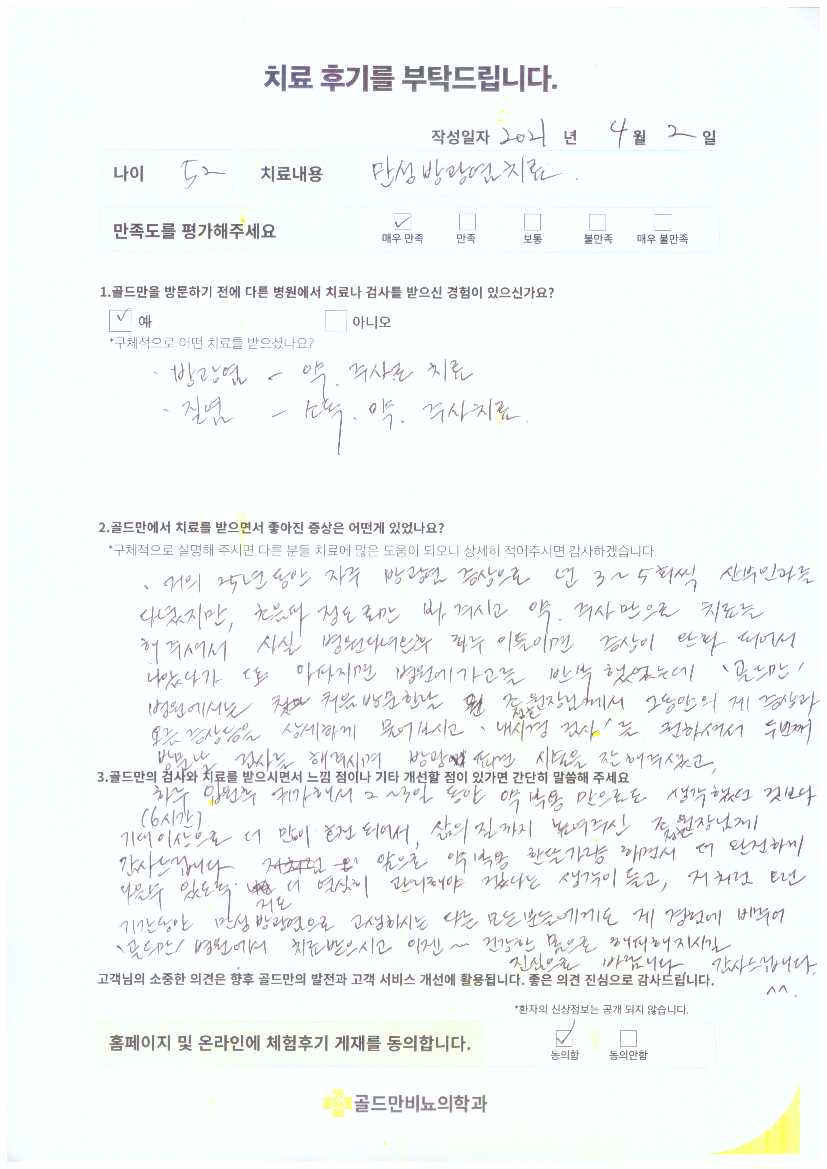 치료 후기를 부탁드립니다.
작성일자 2021 년 4 월 2 일
나이 52 치료내용 만성방광염치료.
만족도를 평가해주세요
매우 만족 만족 보통 불만족 매우 불만족
1.골드만을 방문하기 전에 다른 병원에서 치료나 검사를 받으신 경험이 있으신가요?
예 아니오
*구체적으로 어떤 치료를 받으셨나요?
· 방광염 - 약. 주사로 치료
· 질염 - 소독. 약. 주사치료.
2.골드만에서 치료를 받으면서 좋아진 증상은 어떤게 있었나요?
*구체적으로 설명해 주시면 다른 분들 치료에 많은 도움이 되오니 상세히 적어주시면 감사하겠습니다.
· 거의 25년동안 자주 방광염 증상으로 년 3~5회씩 산부인과를
다녔지만, 초음파 정도로만 봐 주시고 약. 주사만으로 치료를
해주셔서 사실 병원다녀온후 하루 이틀이면 증상이 안파
나았다가 또 아파지면 병원에가고를 반복했었는데 '골드만'
병원에서는 처음방문한날 원장님께서 그동안의 제 증상과
모든 증상등을 상세하게 물어보시고, '내시경 검사'를 권하셔서 두번째
방문날 검사를 해주시며 방광 시술을 잘해주셨고,
3.골드만의 검사와 치료를 받으시면서 느낌 점이나 기타 개선할 점이 있가면 간단히 말씀해 주세요
하루 입원후 귀가해서 2~3일 동안 약 복용 만으로도 생각했던 것보다
(6시간)
기대이상으로 더 많이 호전 되어서, 삶의 질까지 높여주신 원장님께
감사드립니다 앞으로 약 복용 한달가량 하면서 더 완전하게
나을수 있도록 저도 더 열심히 관리해야 겠다는 생각이 들고, 저처럼 오랜
기간동안 만성방광염으로 고생하시는 다른 모든분들에게도 제 경험에 비추어
'골드만' 병원에서 치료받으시고 이젠~ 건강한 몸으로 해피해지시길
진심으로 바랍니다 감사드립니다.
^^.
고객님의 소중한 의견은 향후 골드만의 발전과 고객 서비스 개선에 활용됩니다. 좋은 의견 진심으로 감사드립니다.
*환자의 신상정보는 공개 되지 않습니다.
홈페이지 및 온라인에 체험후기 게재를 동의합니다.
동의함 동의안함
골드만비뇨의학과